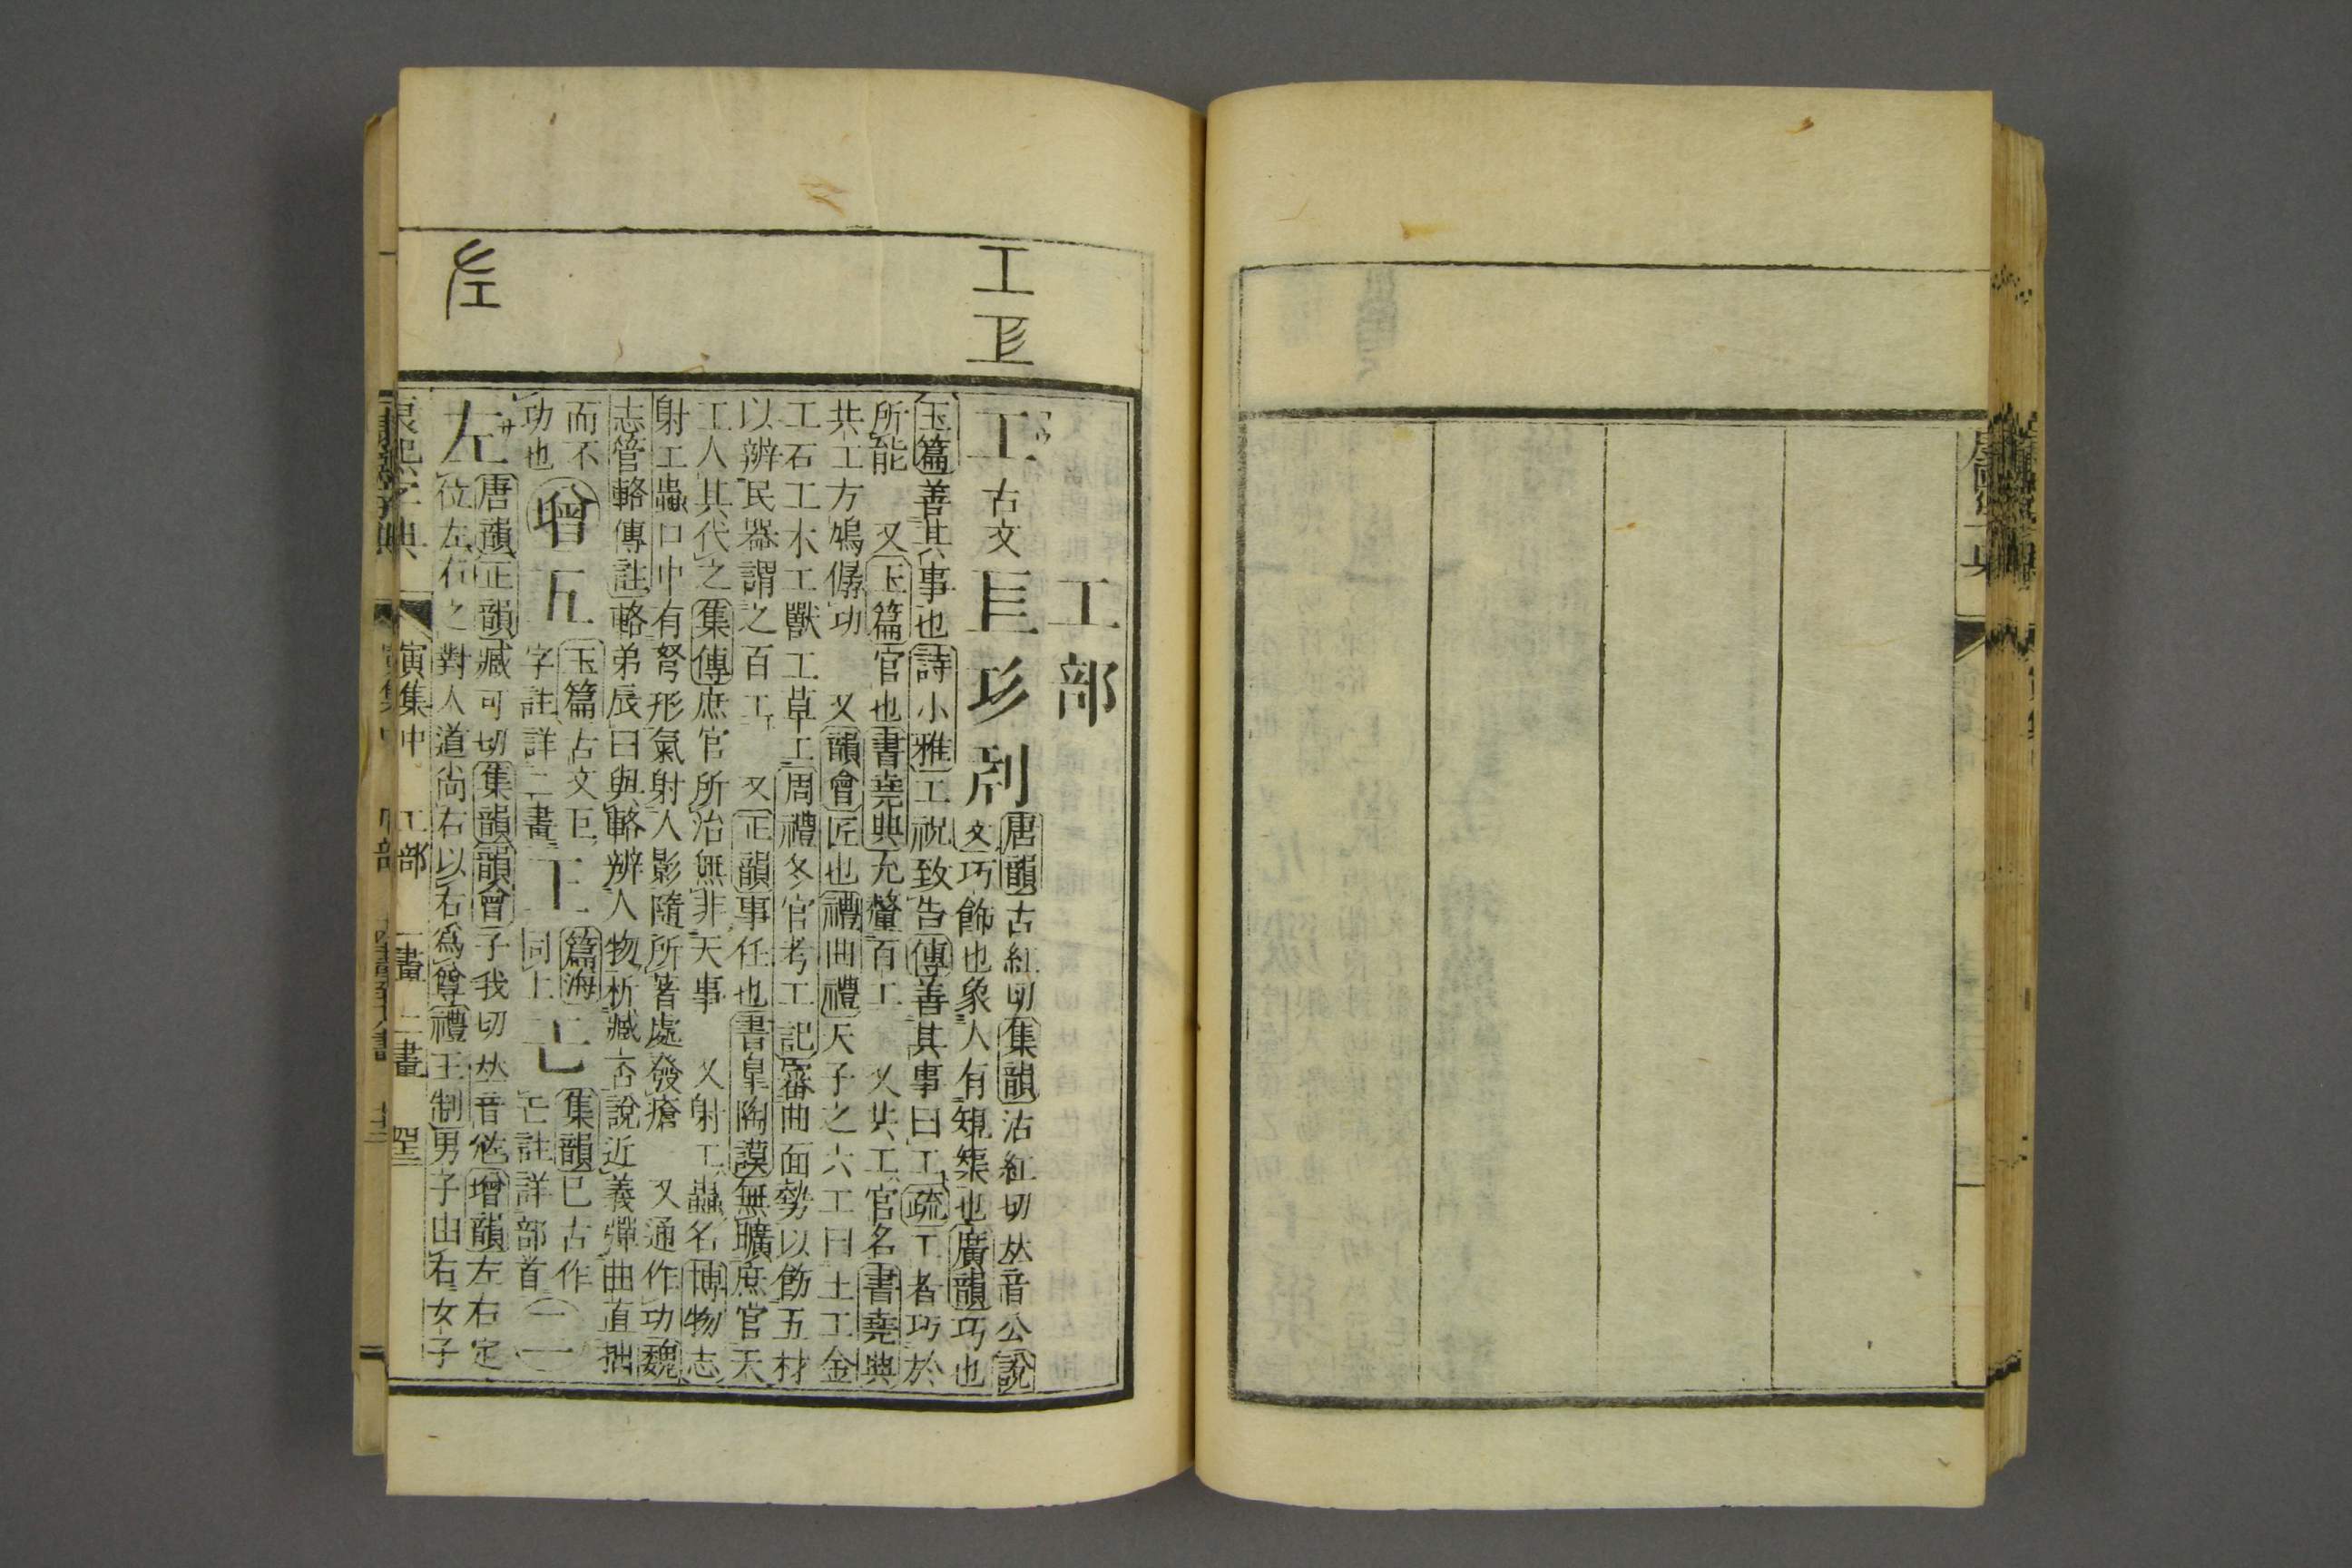 工
左
工部
工 古文 𢒄 㓚 唐韻古紅切集韻沽紅切𠀤音公說
文巧飾也象人有規榘也廣韻巧也
玉篇善其事也詩小雅工祝致告傳善其事曰工疏工者巧於
所能 又玉篇官也書堯典允釐百工 又共工官名書堯典
共工方鳩僝功 又韻會匠也禮曲禮天子之六工曰土工金
工石工木工獸工草工周禮冬官考工記審曲面勢以飭五材
以辨民器謂之百工 又正韻事任也書皐陶謨無曠庶官天
工人其代之集傳庶官所治無非天事 又射工蟲名博物志
射工蟲口中有弩形氣射人影隨所著處發瘡 又通作功魏
志管輅傳註輅弟辰曰與輅辨人物析臧否說近義彈曲直拙
而不功也
增 玉篇古文巨字註詳二畫 篇海同上 集韻巨古作 註詳部首 二
左 唐韻正韻臧可切集韻韻會子我切𠀤音佐增韻左右定
位左右之對人道尚右以右爲尊禮王制男子由右女子
康熙字典 寅集中 工部 一畫 二畫